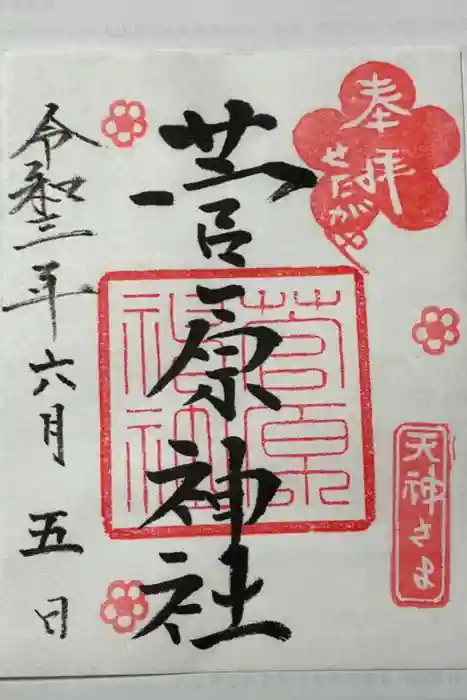 奉拝
せたがい
天神さま
菅原神社
菅原
神社
令和三年六月五日